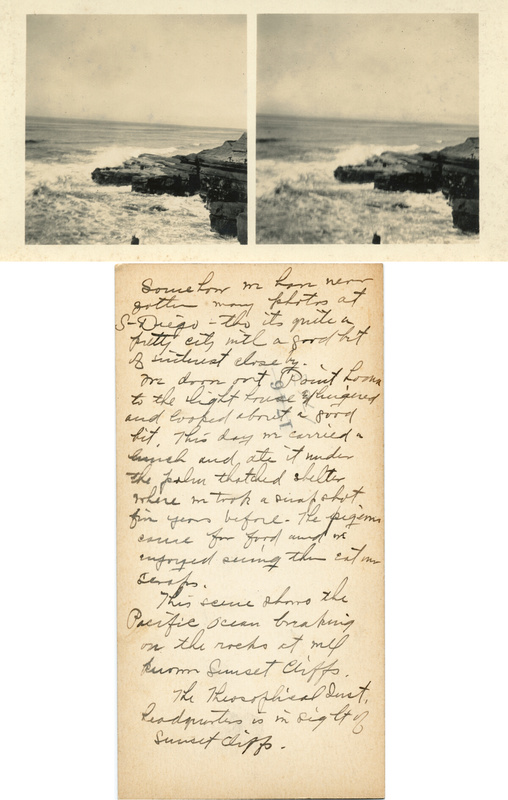 Somehow we have never
gotten many photos at
S-Diego - tho its quite a
pretty city with a good bit
of interest close by.
We down out Point Loma
to the Light house & lingered
and looked about a good
bit. This day we carried a
lunch and ate it under
the palm thatched shelter
where we took a snap shot
five years before. The pigeons
came for food and we
enjoyed seeing them eat our
scraps.
This scene shows the
Pacific Ocean breaking
on the rocks at well
known Sunset Cliffs.
The Theosophical Inst.
headquarters is in sight of
Sunset Cliffs.